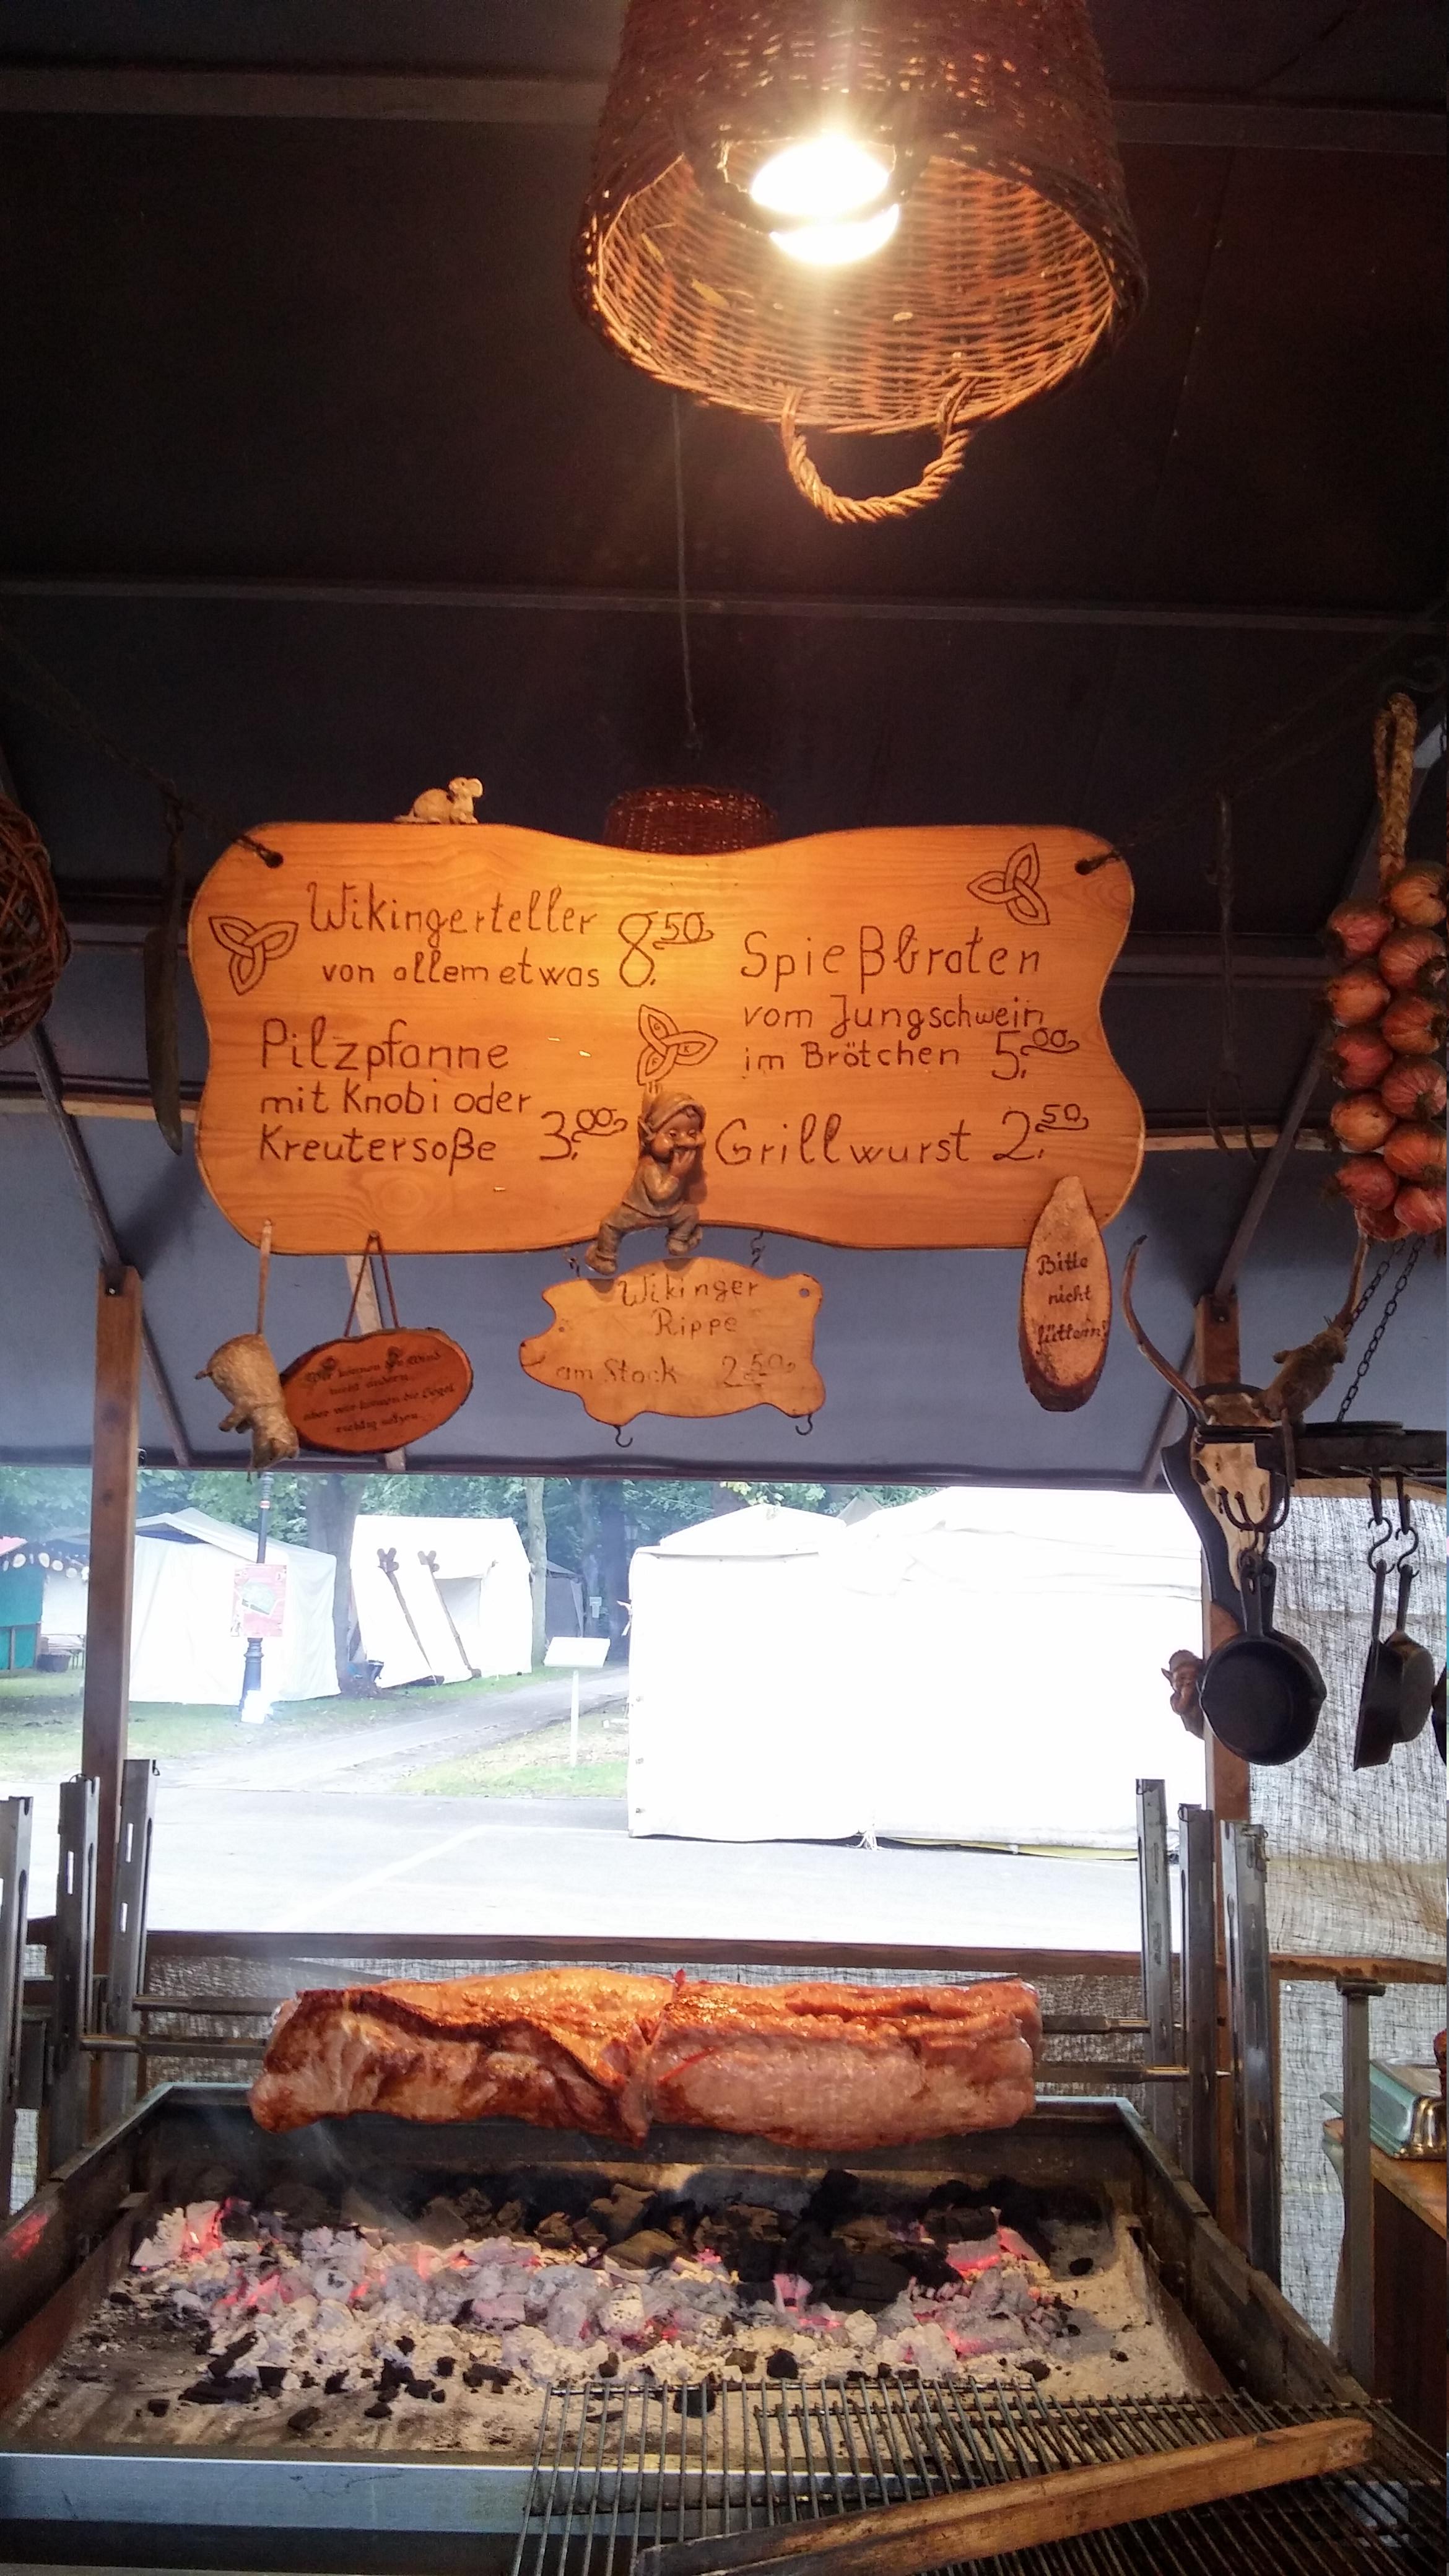 Wikingerteller
von allem etwas 8,50
Pilzpfanne
mit Knobi oder
Kreutersoße 3,00
Spießbraten
vom Jungschwein
im Brötchen 5,00
Grillwurst 2,50
Wikinger
Rippe
am Stock 2,50
Bitte
nicht
füttern!
Wir können den Wind
nicht ändern
aber wir können die Segel
richtig setzen